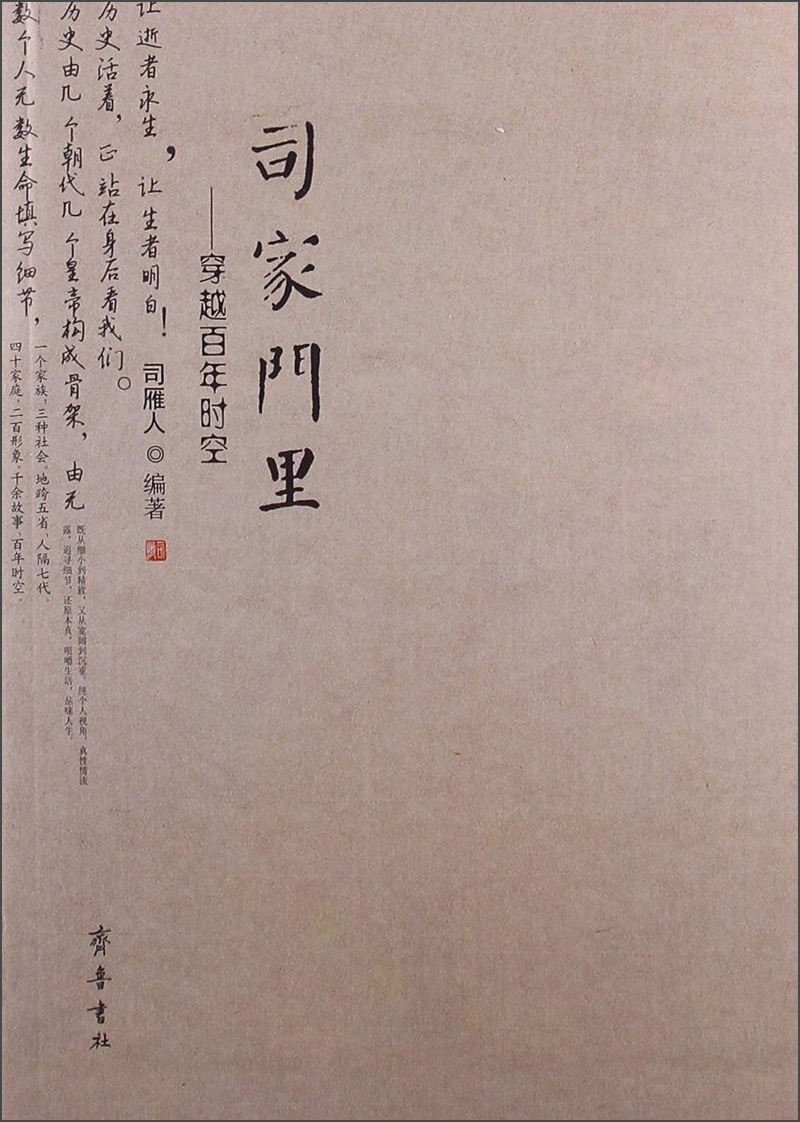 司家門里
——穿越百年时空
让逝者永生，让生者明白！
司雁人◎编著
历史活着，正站在身后看我们。
历史由几个朝代几个皇帝构成骨架，由无
数个人无数生命填写细节，
一个家族，三种社会。地跨五省、人隔七代。
四十家庭，二百形象。千余故事、百年时空。
既从细小到精致，又从宽阔到沉重。纯个人视角，真性情流
露。追寻细节，还原本真。咀嚼生活，品味人生。
齊魯書社